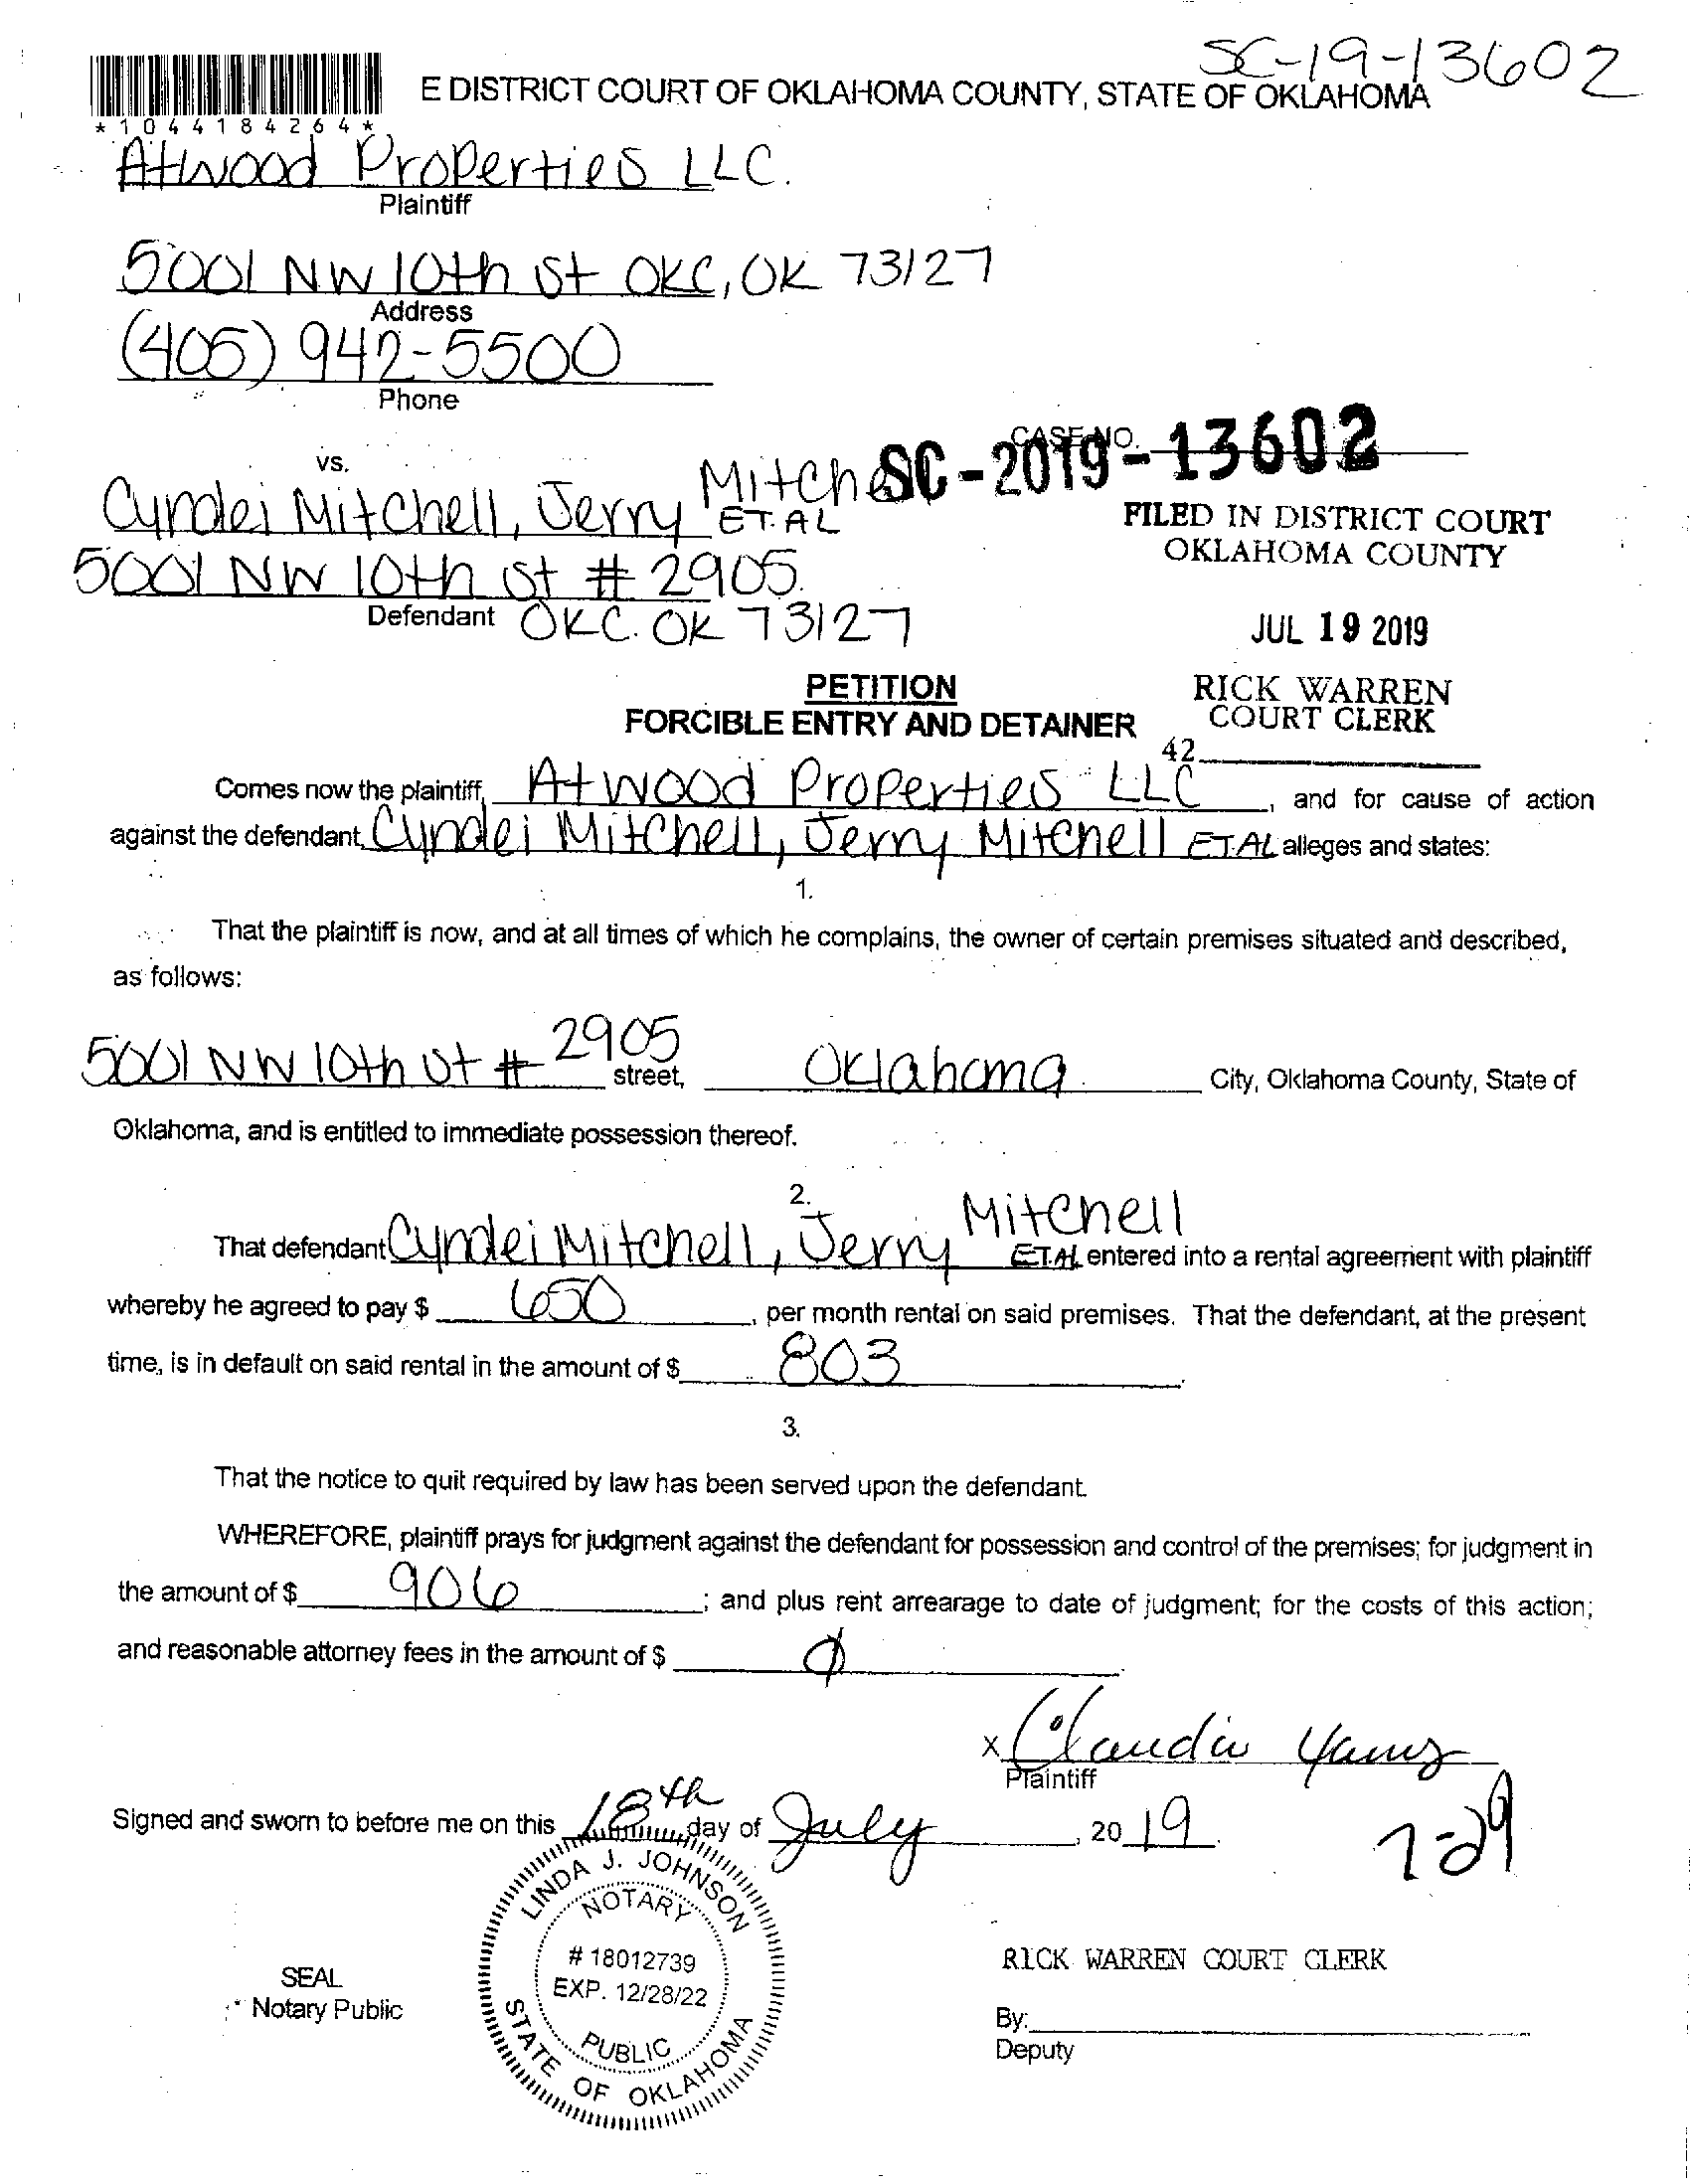 SC-19-13602
E DISTRICT COURT OF OKLAHOMA COUNTY, STATE OF OKLAHOMA
*1044184264*
Atwood Properties LLC.
Plaintiff
5001 NW 10th St OKC, OK 73127
Address
(405) 942-5500
Phone
CASE NO.
SC-2019-13602
vs.
Cyndei Mitchell, Jerry
ET.AL
FILED IN DISTRICT COURT
OKLAHOMA COUNTY
5001 NW 10th St # 2905.
Defendant OKC. OK 73127
JUL 19 2019
PETITION
RICK WARREN
FORCIBLE ENTRY AND DETAINER
COURT CLERK
42
Comes now the plaintiff, Atwood Properties LLC, and for cause of action
against the defendant, Cyndei Mitchell, Jerry Mitchell ET.AL alleges and states:
1.
That the plaintiff is now, and at all times of which he complains, the owner of certain premises situated and described,
as follows:
5001 NW 10th St # 2905 street, Oklahoma City, Oklahoma County, State of
Oklahoma, and is entitled to immediate possession thereof.
2.
That defendant Cyndei Mitchell, Jerry Mitchell ET.AL entered into a rental agreement with plaintiff
whereby he agreed to pay $ 650, per month rental on said premises. That the defendant, at the present
time, is in default on said rental in the amount of $ 803.
3.
That the notice to quit required by law has been served upon the defendant.
WHEREFORE, plaintiff prays for judgment against the defendant for possession and control of the premises; for judgment in
the amount of $ 906; and plus rent arrearage to date of judgment; for the costs of this action;
and reasonable attorney fees in the amount of $ ϕ
X Claudia
Plaintiff
Signed and sworn to before me on this 18th day of July, 2019
7-29
LINDA J. JOHNSON
NOTARY
# 18012739
EXP. 12/28/22
PUBLIC
STATE OF OKLAHOMA
SEAL
Notary Public
RICK WARREN COURT CLERK
By:
Deputy